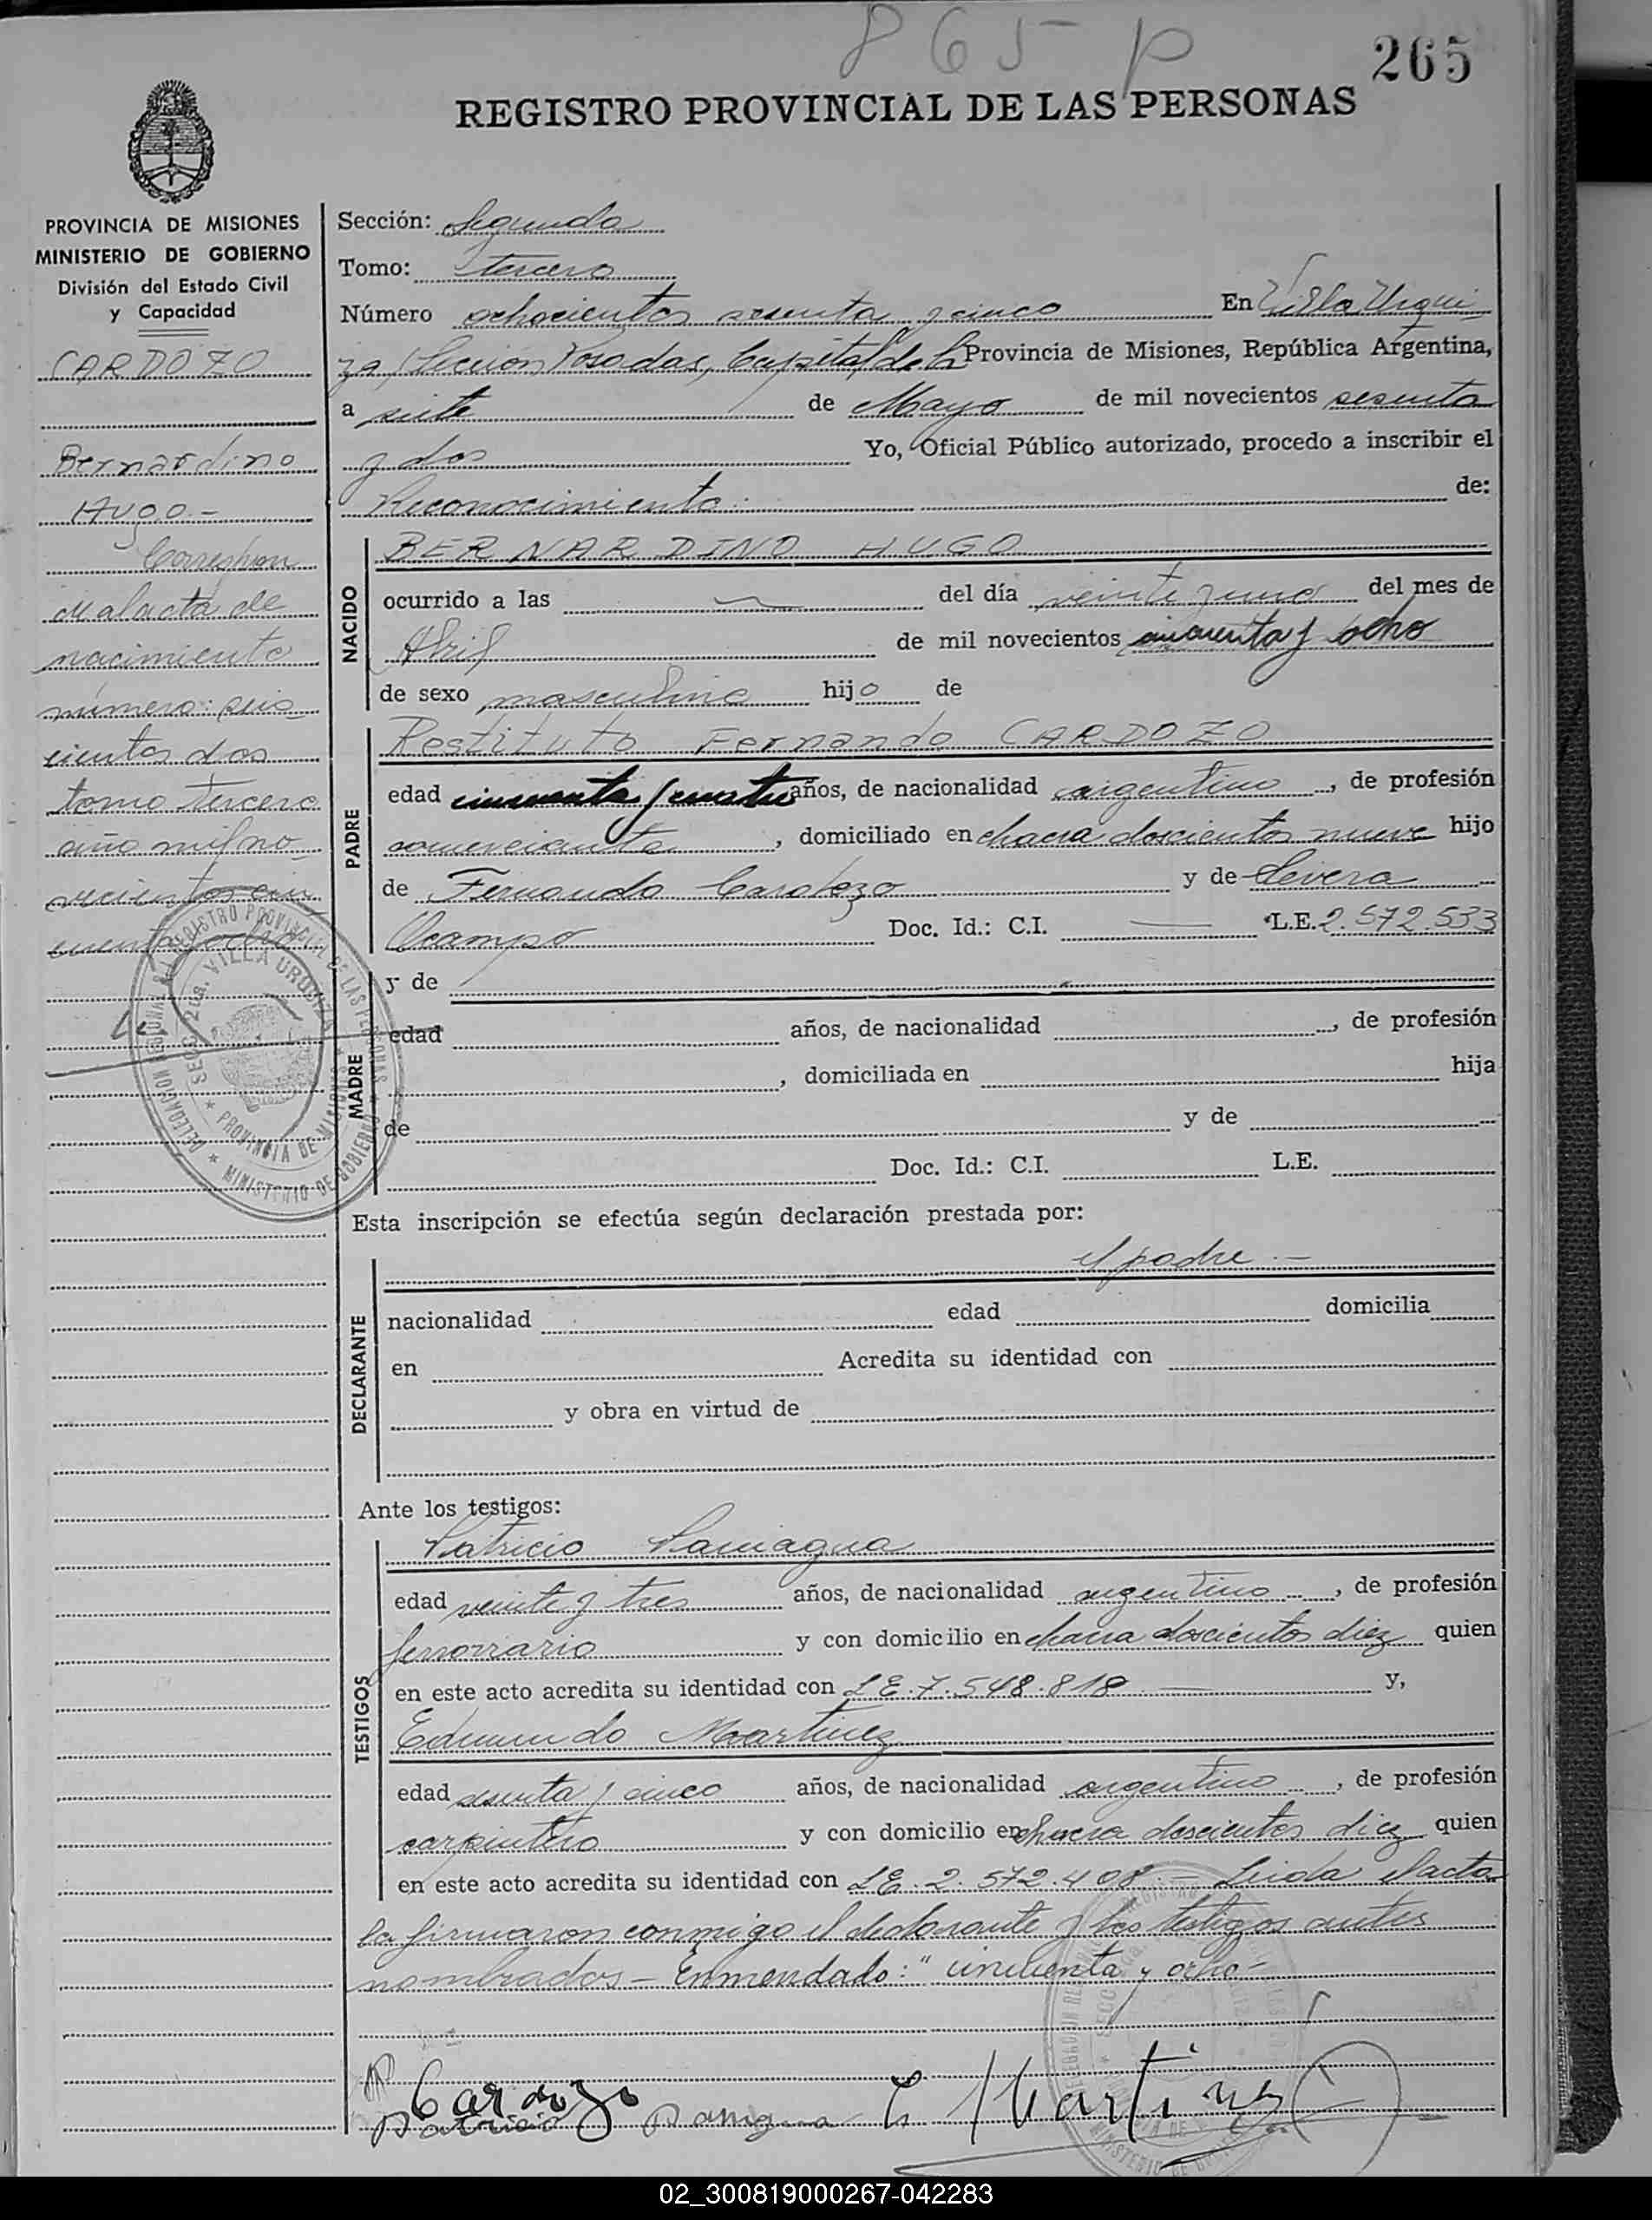 865 P
265
REGISTRO PROVINCIAL DE LAS PERSONAS
PROVINCIA DE MISIONES
MINISTERIO DE GOBIERNO
División del Estado Civil
y Capacidad
CARDOZO
Bernardino
Hugo.-
Correspon
de al acta de
nacimiento
número: seis
cientos dos
tomo tercero
año mil no_
vecientos cin
cuenta y ocho
DELEGACION REGIONAL DEL REGISTRO PROVINCIAL DE LAS PERSONAS * MINISTERIO DE GOBIERNO *
SECC. 2da. VILLA URQUIZA * PROVINCIA DE MISIONES *
Sección: Segunda
Tomo: tercero
Número ochocientos sesenta y cinco En Villa Urqui
za, Sección Posadas, Capital de la Provincia de Misiones, República Argentina,
a siete de Mayo de mil novecientos sesenta
y dos Yo, Oficial Público autorizado, procedo a inscribir el
Reconocimiento: de:
NACIDO
BERNARDINO HUGO
ocurrido a las del día veinte y uno del mes de
Abril de mil novecientos cincuenta y ocho
de sexo masculino hijo de
PADRE
Restituto Fernando CARDOZO
edad cincuenta y cuatro años, de nacionalidad argentino, de profesión
comerciante, domiciliado en chacra doscientos nueve hijo
de Fernando Cardozo y de Severa
Ocampo Doc. Id.: C.I. — L.E. 2.572.533
MADRE
y de
edad años, de nacionalidad , de profesión
, domiciliada en hija
de y de
Doc. Id.: C.I. L.E.
Esta inscripción se efectúa según declaración prestada por:
DECLARANTE
el padre.-
nacionalidad edad domicilia
en Acredita su identidad con
y obra en virtud de
Ante los testigos:
TESTIGOS
Patricio Paniagua
edad veinte y tres años, de nacionalidad argentino, de profesión
ferroviario y con domicilio en chacra doscientos diez quien
en este acto acredita su identidad con L.E. 7.548.818 y,
Edmundo Martinez
edad sesenta y cinco años, de nacionalidad argentino, de profesión
carpintero y con domicilio en chacra doscientos diez quien
en este acto acredita su identidad con L.E. 2.572.408 - Leida el acta
la firmaron conmigo el declarante y los testigos antes
nombrados - Enmendado: "cincuenta y ocho-
Cardozo
Patricio Paniagua E Martinez
02_300819000267-042283